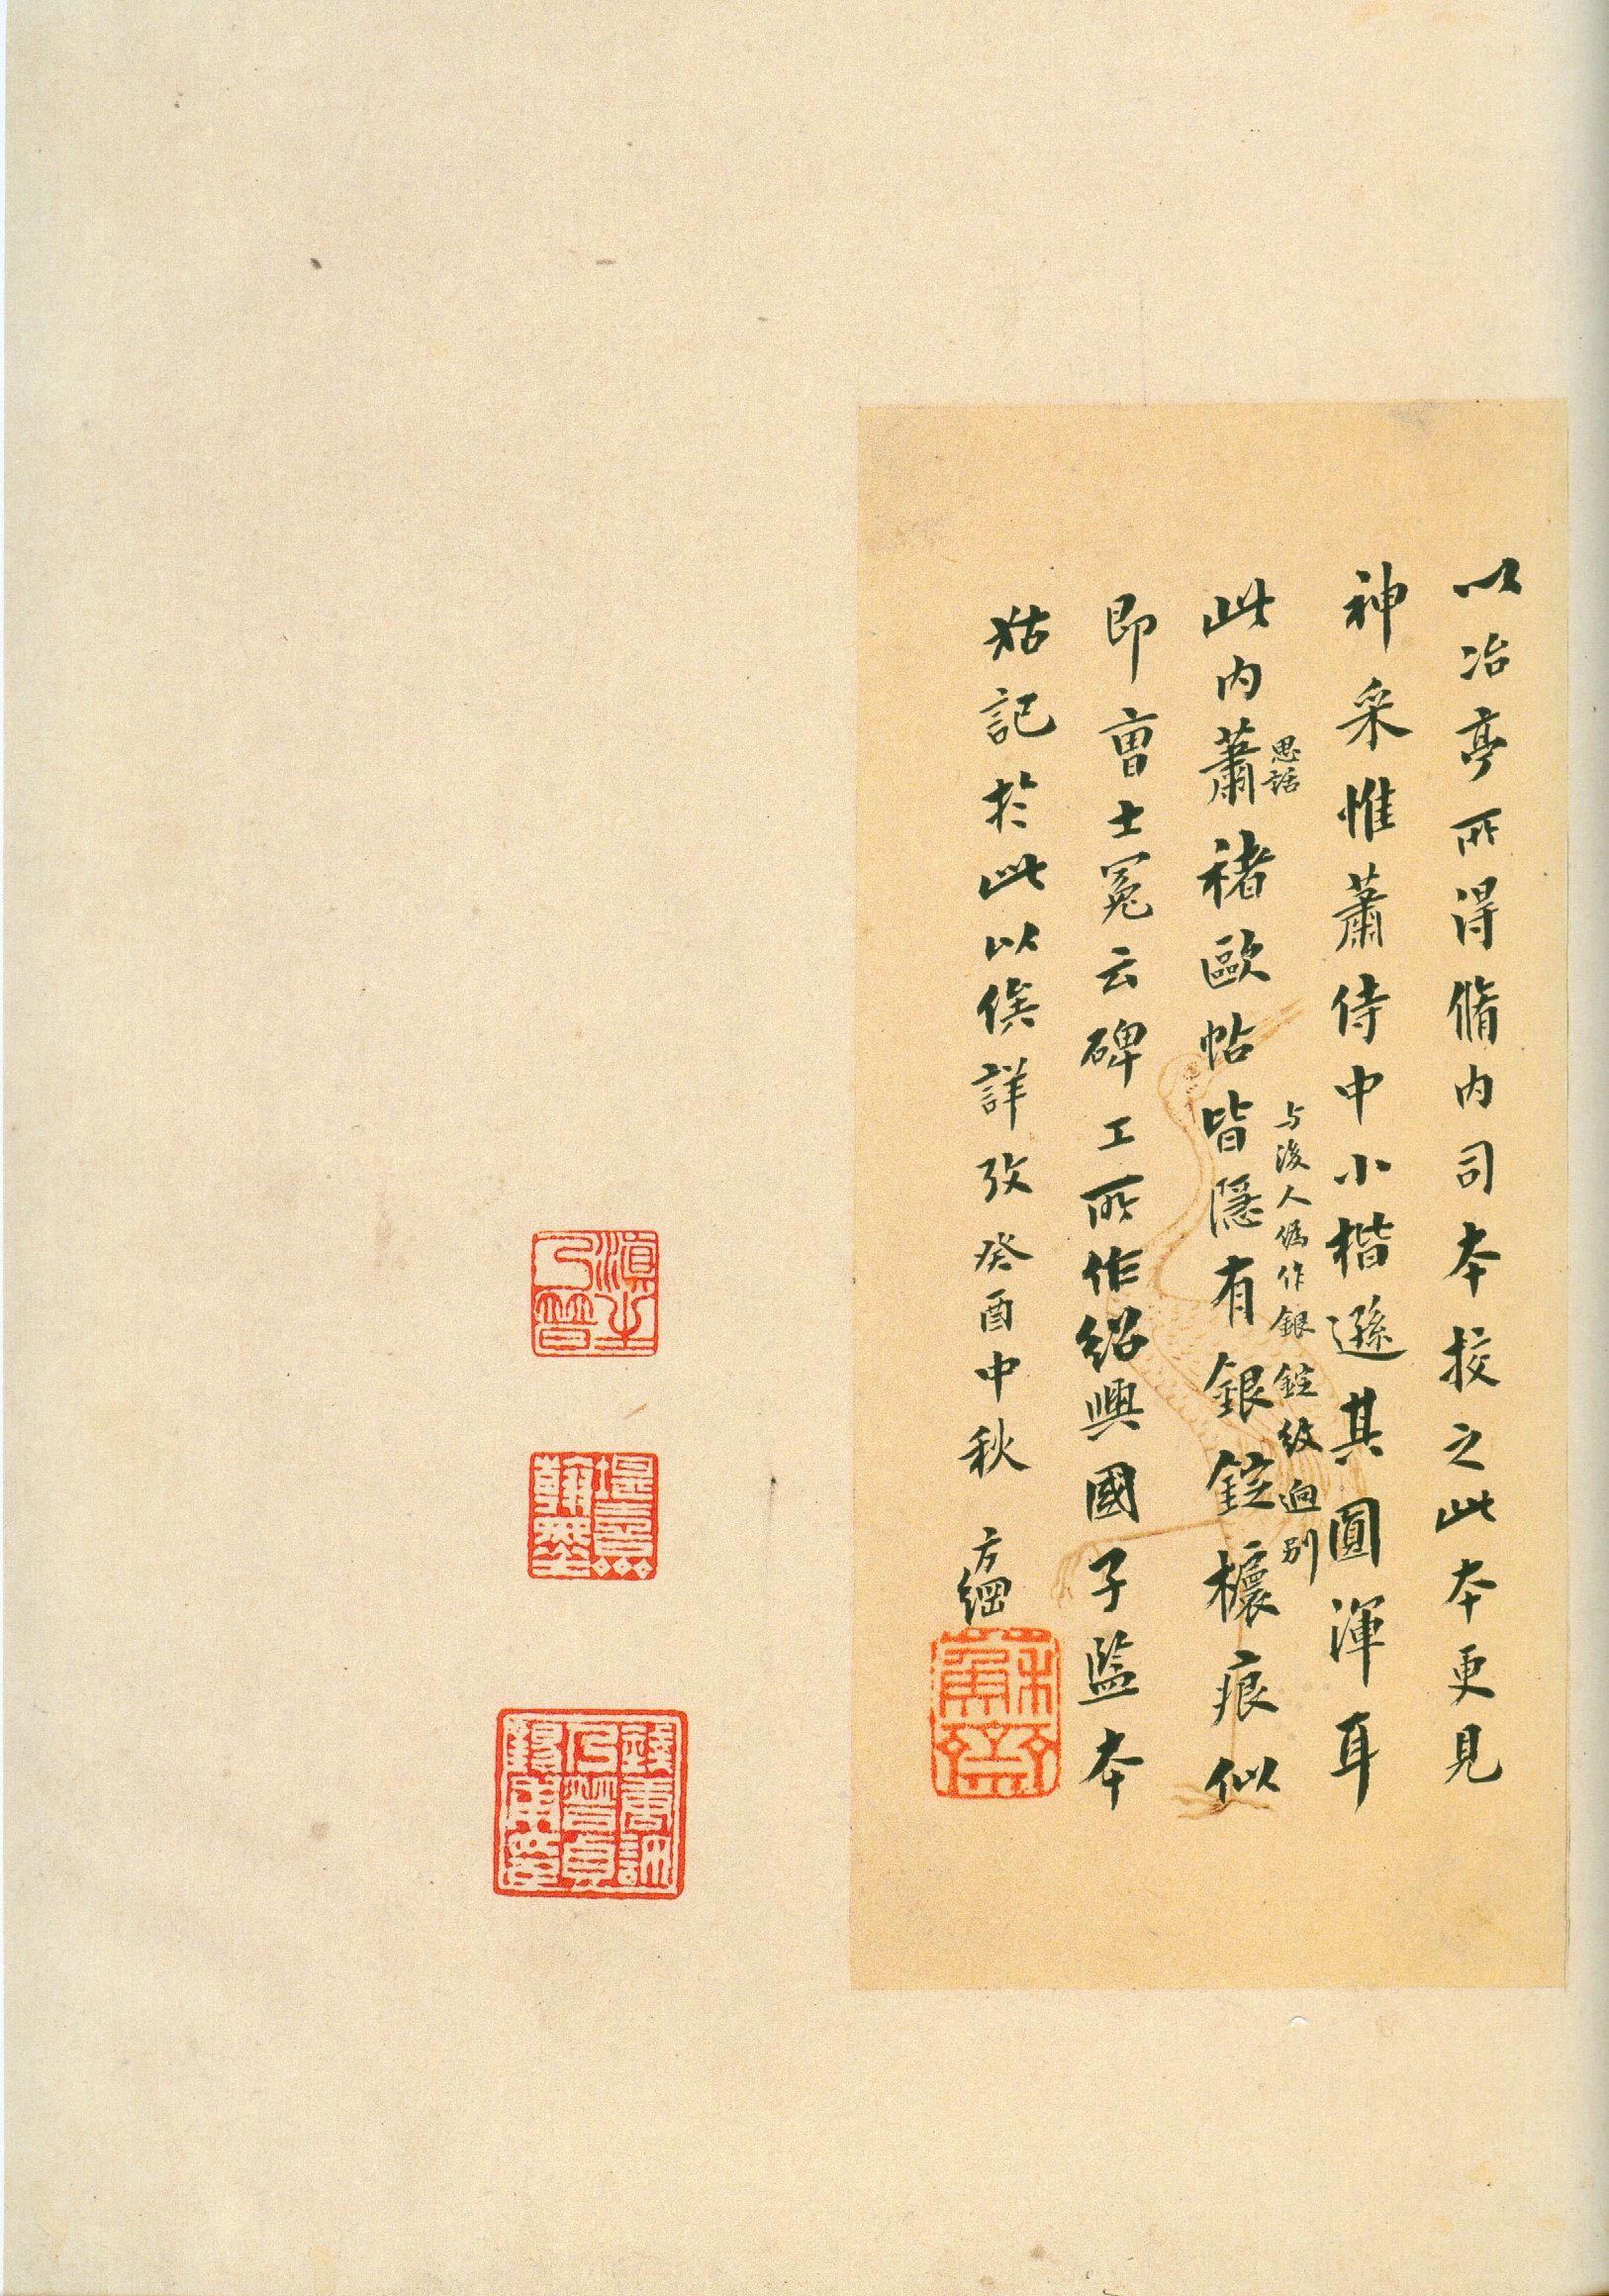 以冶亭所得脩内司本挍之此本更見
神采惟蕭侍中小楷遜其圓渾耳
此内蕭思話褚歐帖皆隱有銀錠欀痕似
与後人僞作銀錠紋迥别
即曹士冕云碑工所作紹興國子監本
姑記於此以俟詳攷癸酉中秋 方綱
蘇齋